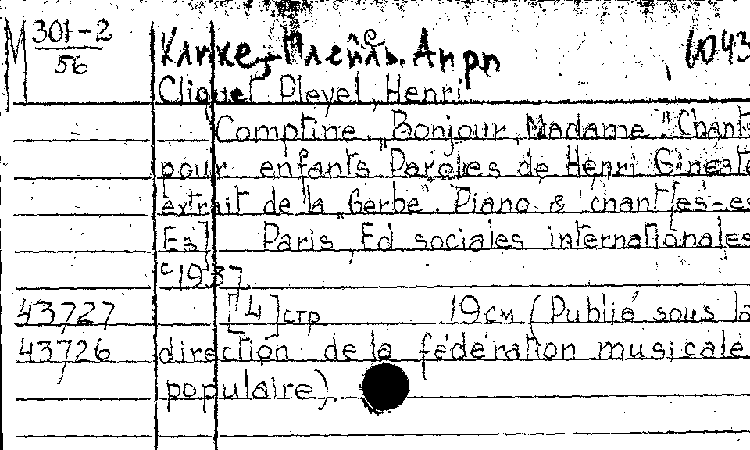 М 301-2 Клике-Плейель. Анри 6043
56
Cliquet Pleyel, Henri
Comptine „Bonjour, Madame" Chants
pour enfants Paroles de Henri Gineste
extrait de la „Gerbe". Piano & chant [es-es
Es] Paris, Ed sociales internationales
c1937
43727 [4] стр 19 см (Publié sous la
43726 direction de la fédération musicale
populaire).